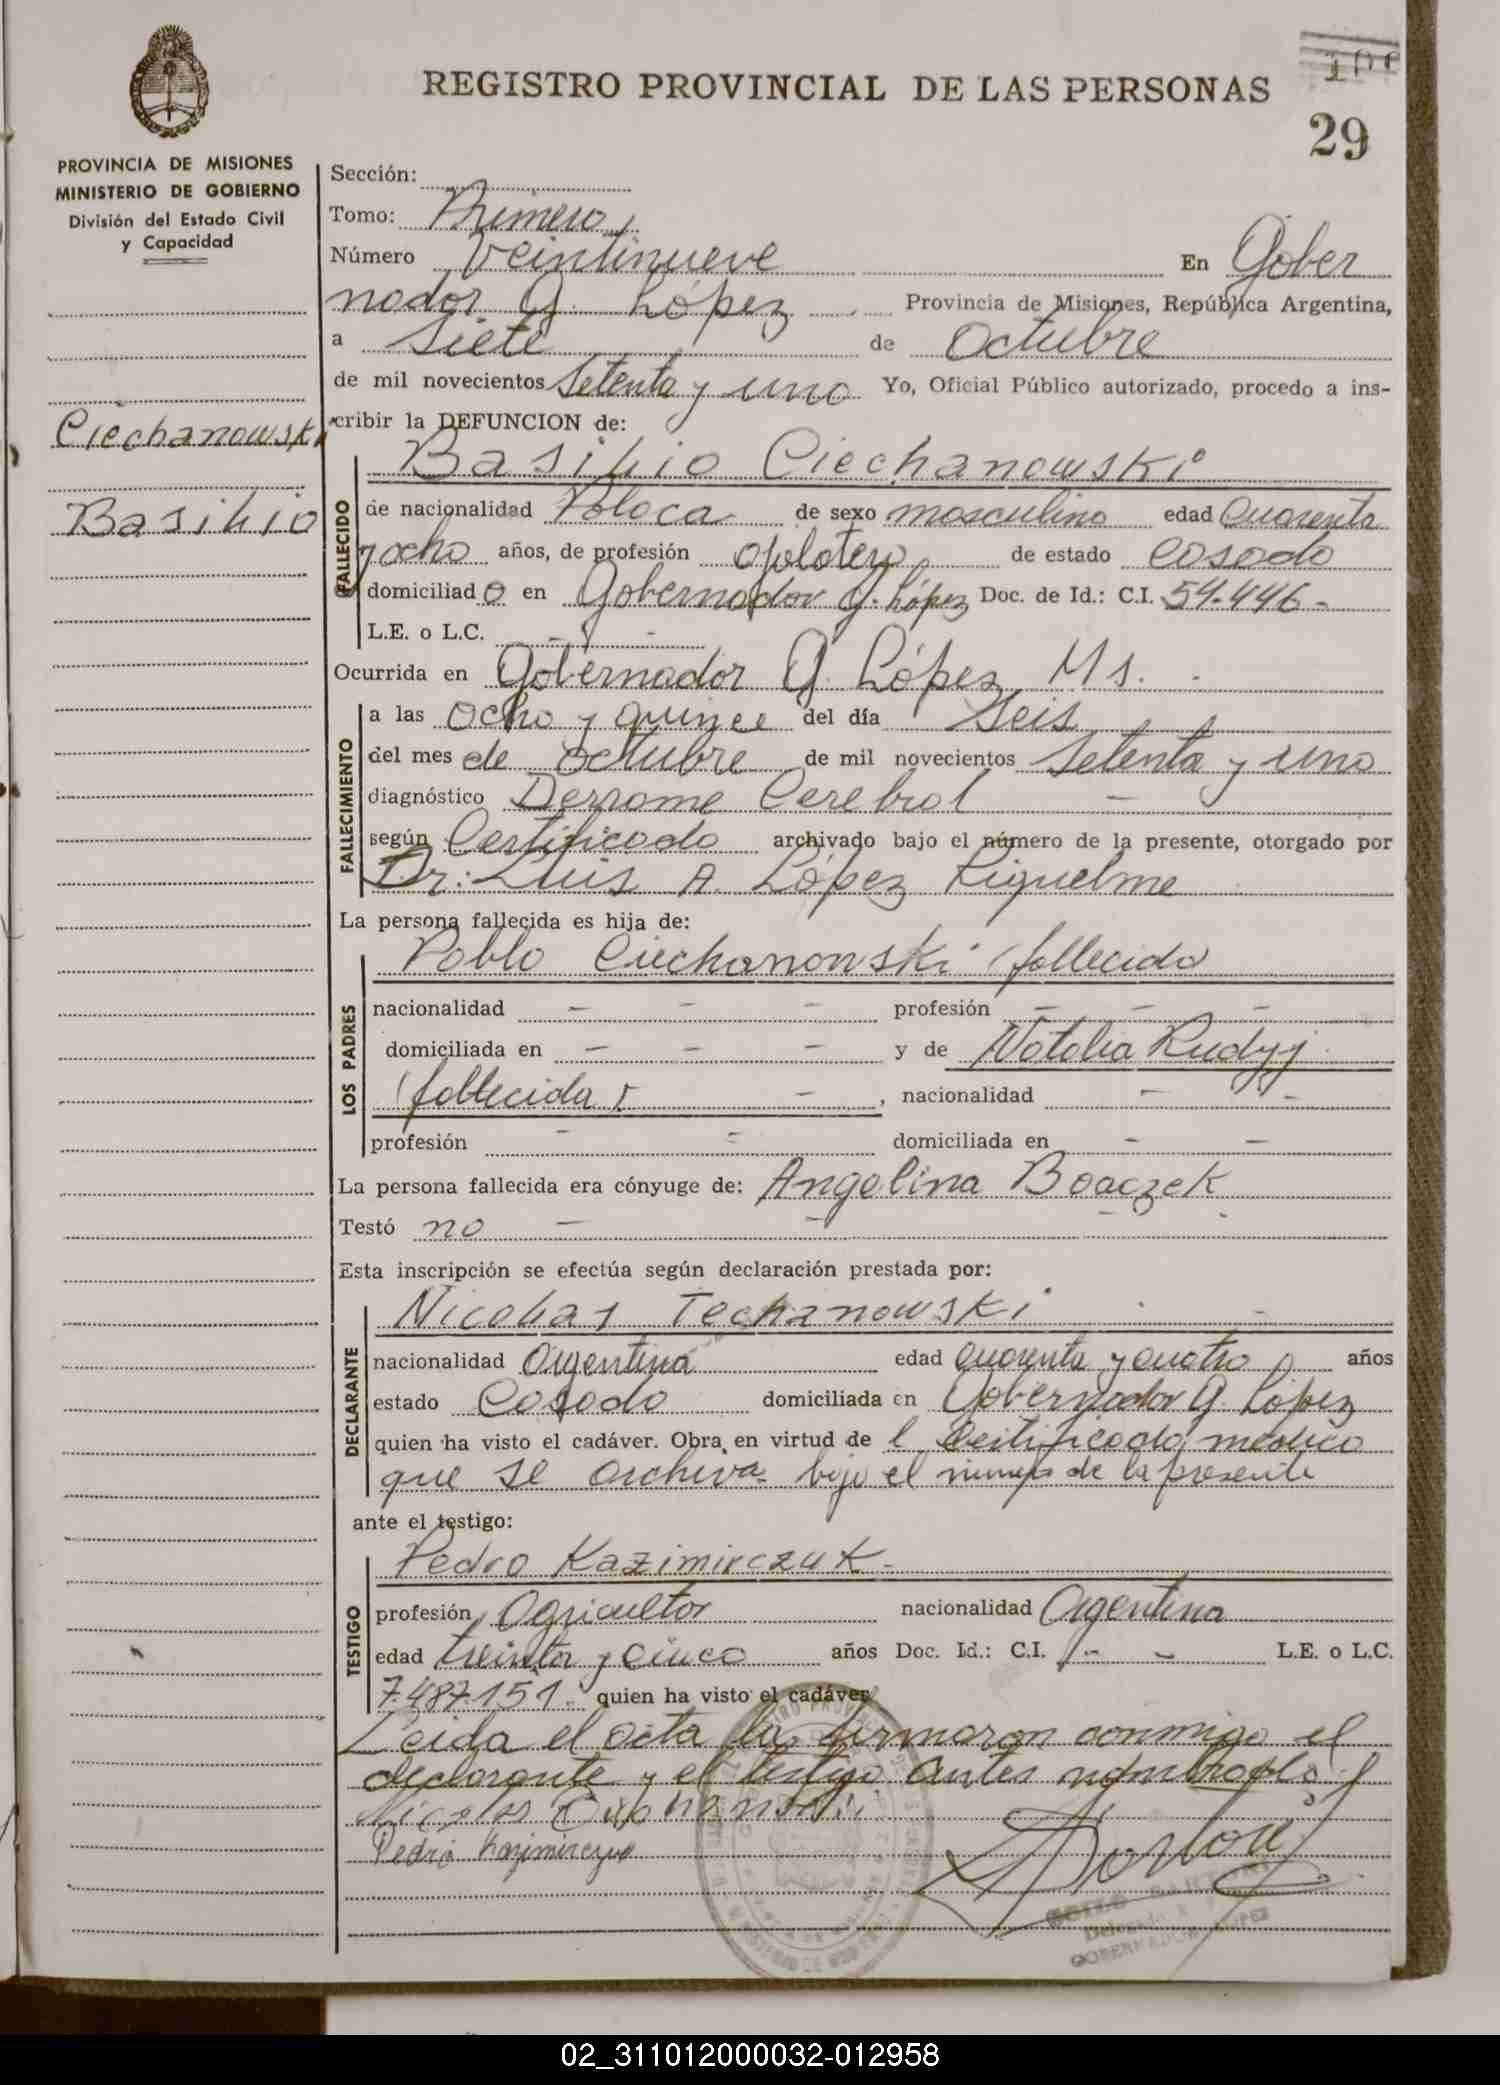 REGISTRO PROVINCIAL DE LAS PERSONAS
29
PROVINCIA DE MISIONES
MINISTERIO DE GOBIERNO
División del Estado Civil
y Capacidad
Ciechanowski
Basilio
Sección:
Tomo: Primero
Número veintinueve En Gober
nador G. López Provincia de Misiones, República Argentina,
a Siete de Octubre
de mil novecientos Setenta y uno Yo, Oficial Público autorizado, procedo a ins-
cribir la DEFUNCION de:
FALLECIDO
Basilio Ciechanowski
de nacionalidad Polaca de sexo masculino edad Cuarenta
y ocho años, de profesión de estado Casado
domiciliado en Gobernador G. López Doc. de Id.: C.I. 54.446-
L.E. o L.C. - -
Ocurrida en Gobernador G. López Ms.
FALLECIMIENTO
a las ocho y quince del día Seis
del mes de octubre de mil novecientos Setenta y uno
diagnóstico Derrame Cerebral -
según Certificado archivado bajo el número de la presente, otorgado por
Dr: Luis A. López Riquelme
La persona fallecida es hija de:
LOS PADRES
Pablo Ciechanowski (fallecido
nacionalidad - - - profesión - - -
domiciliada en - - - y de Natalia Rudyj
(fallecida) - , nacionalidad - -
profesión - - domiciliada en - -
La persona fallecida era cónyuge de: Angelina Boaczek
Testó no - -
Esta inscripción se efectúa según declaración prestada por:
DECLARANTE
Nicolas Techanowski
nacionalidad Argentina edad cuarenta y cuatro años
estado Casado domiciliada en Gobernador G. López
quien ha visto el cadáver. Obra en virtud de l Certificado médico
que se archiva bajo el número de la presente
ante el testigo:
TESTIGO
Pedro Kazimirczuk-
profesión Agricultor nacionalidad Argentina
edad treinta y cinco años Doc. Id.: C.I. - - L.E. o L.C.
7.487.151- quien ha visto el cadáver
Leida el acta la firmaron conmigo el
declarante y el testigo antes nombrado
Pedro Kazimirczuk
GOBERNADOR LOPEZ
02_311012000032-012958